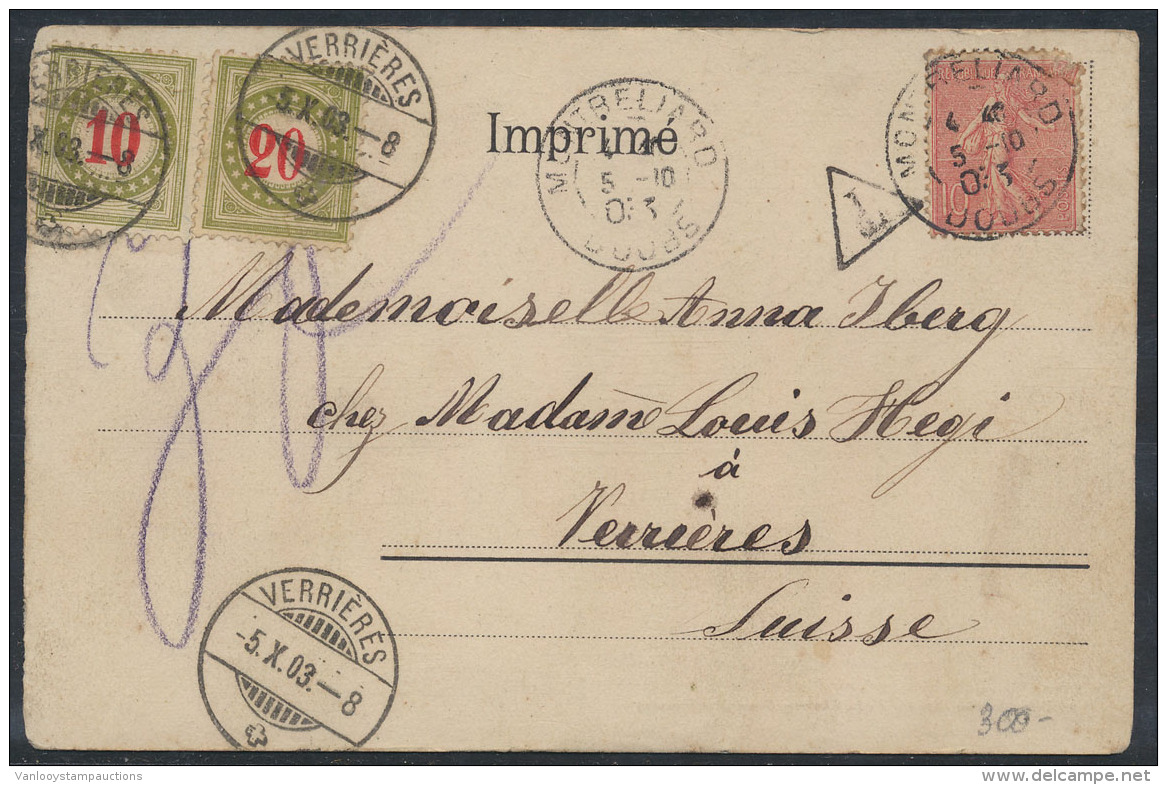 VERRIÈRES
X.03.-8
10
VERRIÈRES
5.X.03.-8
20
Imprimé
MONTBELIARD
5 -10
03
DOUBS
T
MONTBELIARD
5 -10
03
DOUBS
10
POSTES
Mademoiselle Anna Iberg
chez Madame Louis Hegi
à
Verrières
Suisse
VERRIÈRES
-5.X.03.-8
300-
Vanlooystampauctions
delcampe.net